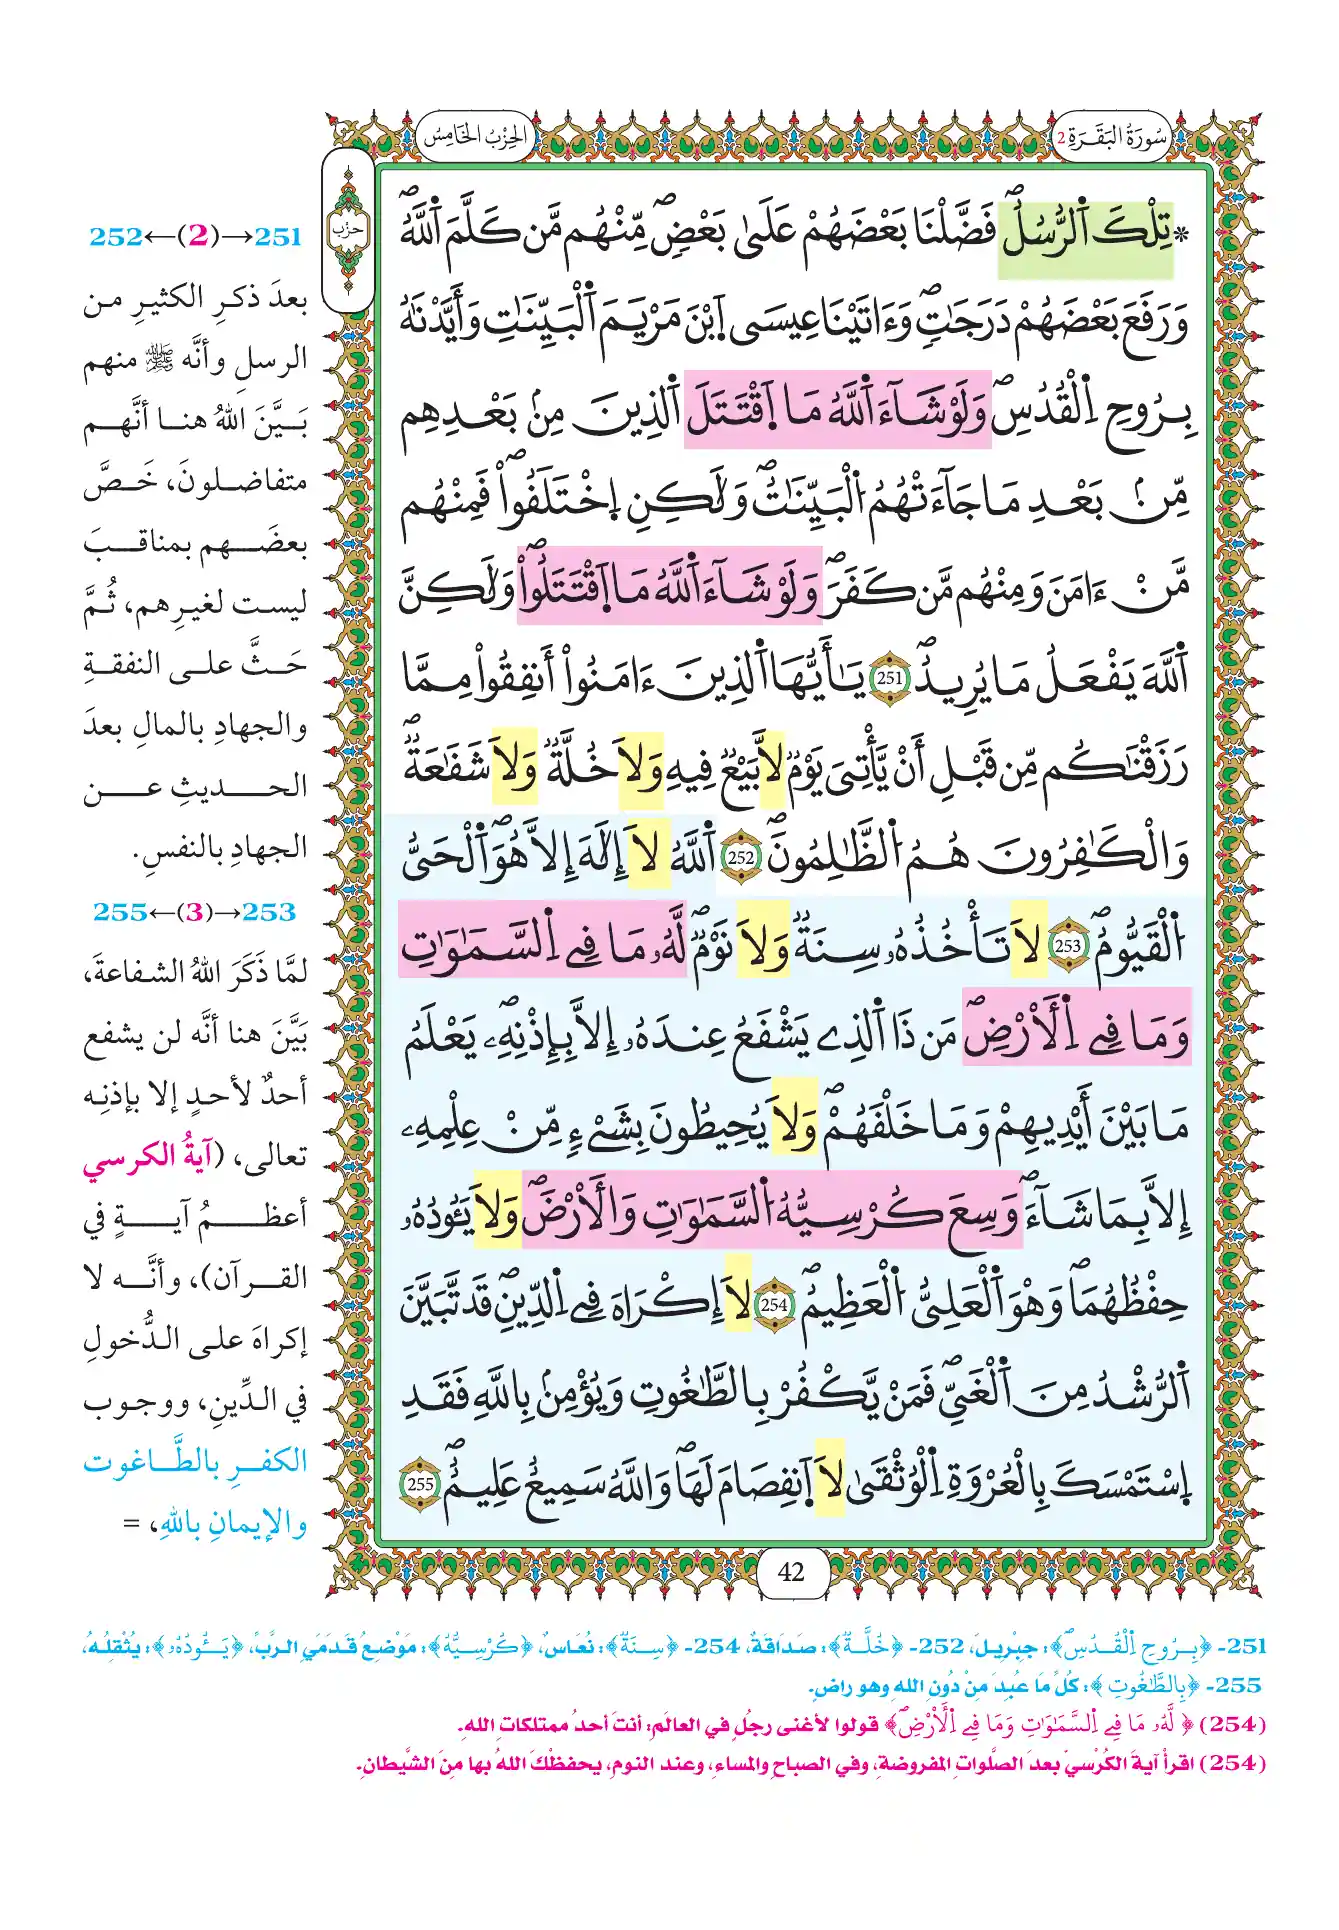 سُورَةُ البَقَرَةِ 2
الحِزْبُ الخَامِسُ
حزب
* تِلْكَ اَ۬لرُّسُلُۖ فَضَّلْنَا بَعْضَهُمْ عَلَىٰ بَعْضٖۖ مِّنْهُم مَّن كَلَّمَ اَ۬للَّهُۖ
وَرَفَعَ بَعْضَهُمْ دَرَجَٰتٖۖ وَءَاتَيْنَا عِيسَى اَ۪بْنَ مَرْيَمَ اَ۬لْبَيِّنَٰتِ وَأَيَّدْنَٰهُ
بِرُوحِ اِ۬لْقُدُسِۖ وَلَوْ شَآءَ اَ۬للَّهُ مَا اَ۪قْتَتَلَ اَ۬لذِينَ مِنۢ بَعْدِهِم
مِّنۢ بَعْدِ مَا جَآءَتْهُمُ اُ۬لْبَيِّنَٰتُۖ وَلَٰكِنِ اِ۪خْتَلَفُواْۖ فَمِنْهُم
مَّنْ ءَامَنَ وَمِنْهُم مَّن كَفَرَۖ وَلَوْ شَآءَ اَ۬للَّهُ مَا اَ۪قْتَتَلُواْۖ وَلَٰكِنَّ
اَ۬للَّهَ يَفْعَلُ مَا يُرِيدُۖ 251 يَٰأَيُّهَا اَ۬لذِينَ ءَامَنُواْ أَنفِقُواْ مِمَّا
رَزَقْنَٰكُم مِّن قَبْلِ أَنْ يَّأْتِىَ يَوْمٞ لَّا بَيْعٞ فِيهِ وَلَا خُلَّةٞ وَلَا شَفَٰعَةٞۖ
وَالْكَٰفِرُونَ هُمُ اُ۬لظَّٰلِمُونَۖ 252 اَ۬للَّهُ لَا إِلَٰهَ إِلَّا هُوَۖ اَ۬لْحَىُّ
اُ۬لْقَيُّومُۖ 253 لَا تَأْخُذُهُۥ سِنَةٞ وَلَا نَوْمٞۖ لَّهُۥ مَا فِے اِ۬لسَّمَٰوَٰتِ
وَمَا فِے اِ۬لْأَرْضِۖ مَن ذَا اَ۬لذِے يَشْفَعُ عِندَهُۥ إِلَّا بِإِذْنِهِۦۖ يَعْلَمُ
مَا بَيْنَ أَيْدِيهِمْ وَمَا خَلْفَهُمْۖ وَلَا يُحِيطُونَ بِشَےْءٖ مِّنْ عِلْمِهِۦ
إِلَّا بِمَا شَآءَۖ وَسِعَ كُرْسِيُّهُ اُ۬لسَّمَٰوَٰتِ وَالْأَرْضَۖ وَلَا يَـُٔودُهُۥ
حِفْظُهُمَاۖ وَهُوَ اَ۬لْعَلِىُّ اُ۬لْعَظِيمُۖ 254 لَا إِكْرَاهَ فِے اِ۬لدِّينِۖ قَد تَّبَيَّنَ
اَ۬لرُّشْدُ مِنَ اَ۬لْغَىِّۖ فَمَنْ يَّكْفُرْ بِالطَّٰغُوتِ وَيُؤْمِنۢ بِاللَّهِ فَقَدِ
اِ۪سْتَمْسَكَ بِالْعُرْوَةِ اِ۬لْوُثْقَىٰ لَا اَ۪نفِصَامَ لَهَاۖ وَاللَّهُ سَمِيعٌ عَلِيمٌۖ 255
42
251→(2)←252
بعدَ ذكرِ الكثيرِ من
الرسلِ وأنَّه ﷺ منهم
بَيَّنَ اللهُ هنا أنَّهم
متفاضلونَ، خَصَّ
بعضَهم بمناقبَ
ليست لغيرِهم، ثُمَّ
حَثَّ على النفقةِ
والجهادِ بالمالِ بعدَ
الحديثِ عن
الجهادِ بالنفسِ.
253→(3)←255
لمَّا ذَكَرَ اللهُ الشفاعةَ،
بَيَّنَ هنا أنَّه لن يشفع
أحدٌ لأحدٍ إلا بإذنِه
تعالى، (آيةُ الكرسي
أعظمُ آيةٍ في
القرآن)، وأنَّه لا
إكراهَ على الدُّخولِ
في الدِّينِ، ووجوب
الكفرِ بالطَّاغوت
والإيمانِ باللهِ، =
251- ﴿بِرُوحِ اِ۬لْقُدُسِۖ﴾: جِبْرِيلَ، 252- ﴿خُلَّةٞ﴾: صَدَاقَةٌ، 254- ﴿سِنَةٞ﴾: نُعَاسٌ، ﴿كُرْسِيُّهُ﴾: مَوْضِعُ قَدَمَيِ الرَّبِّ، ﴿يَـُٔودُهُۥ﴾: يُثْقِلُهُ،
255- ﴿بِالطَّٰغُوتِ﴾: كُلُّ مَا عُبِدَ مِنْ دُونِ اللهِ وهو راضٍ.
(254) ﴿ لَّهُۥ مَا فِے اِ۬لسَّمَٰوَٰتِ وَمَا فِے اِ۬لْأَرْضِۖ﴾ قولوا لأغنى رجُلٍ في العالَمِ: أنتَ أحدُ ممتلكاتِ اللهِ.
(254) اقرأْ آيةَ الكُرْسيِّ بعدَ الصَّلواتِ المفروضةِ، وفي الصباحِ والمساءِ، وعند النومِ، يحفظْكَ اللهُ بها مِنَ الشَّيطانِ.